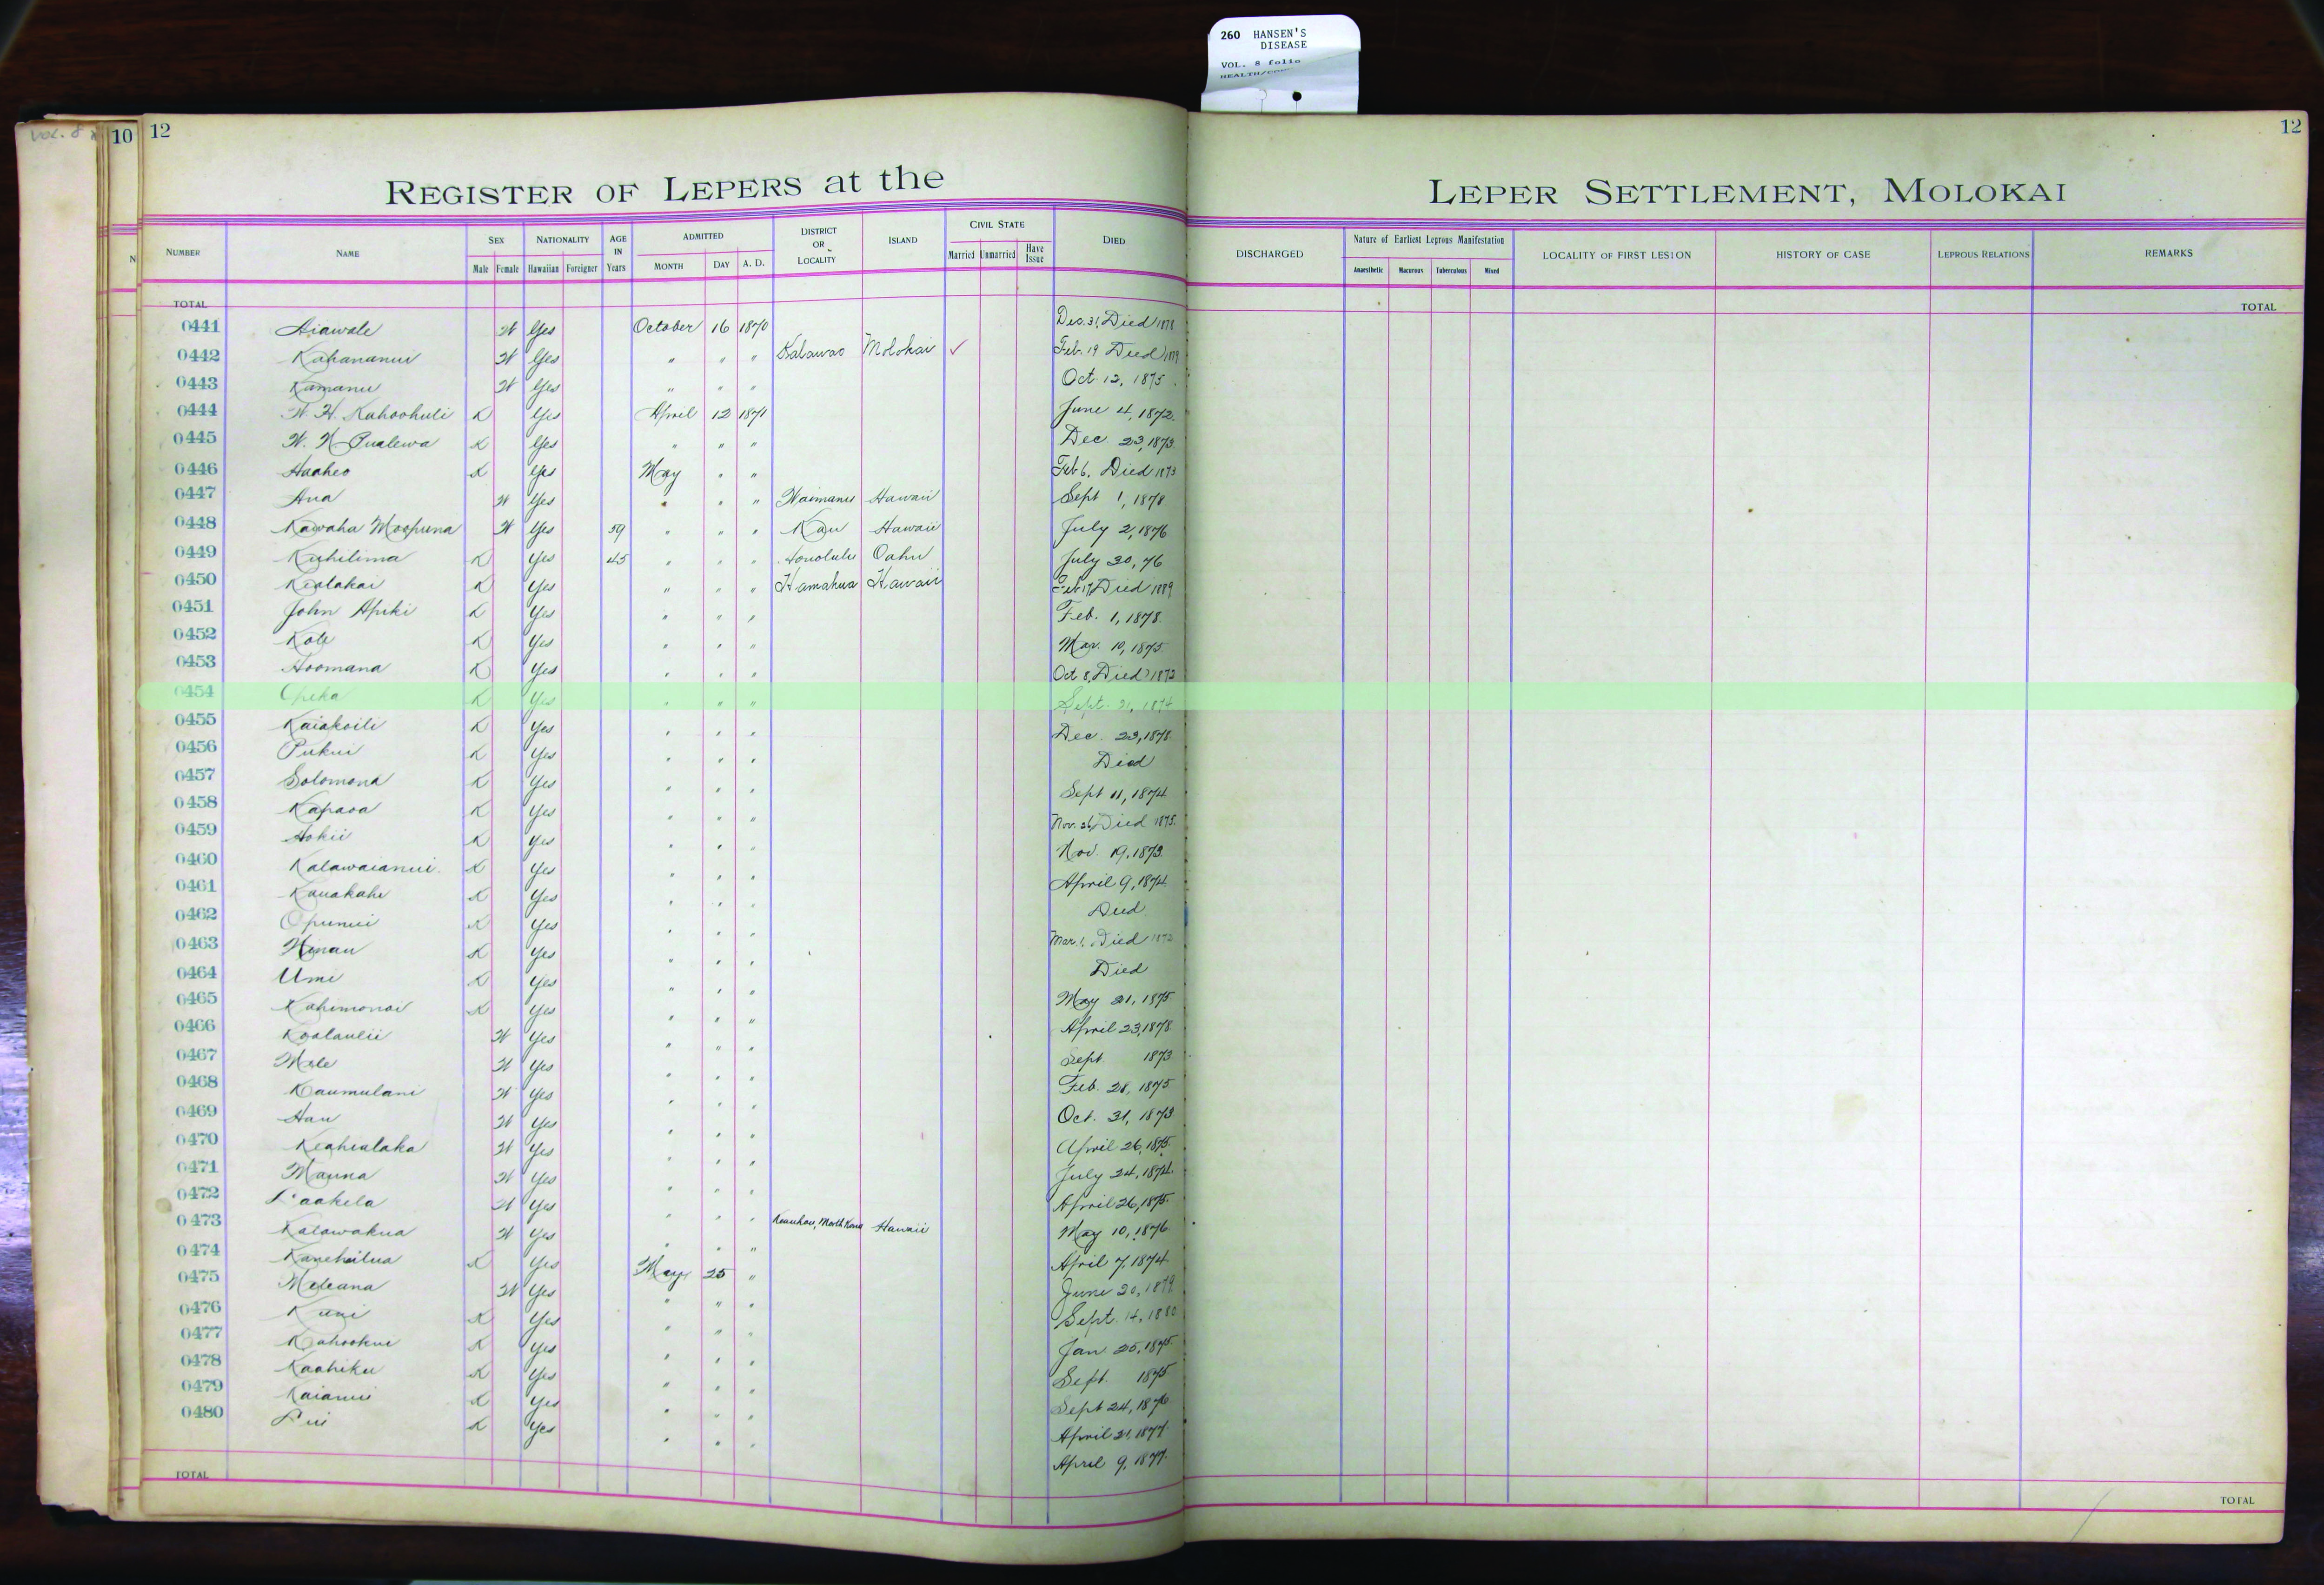 260 HANSEN'S
DISEASE
VOL. 8 folio
VOL. 8
10 12
12
REGISTER OF LEPERS at the LEPER SETTLEMENT, MOLOKAI
NUMBER NAME SEX NATIONALITY AGE IN Years ADMITTED DISTRICT OR LOCALITY ISLAND CIVIL STATE DIED DISCHARGED Nature of Earliest Leprous Manifestation LOCALITY OF FIRST LESION HISTORY OF CASE LEPROUS RELATIONS REMARKS
Male Female Hawaiian Foreigner MONTH DAY A. D. Married Unmarried Have Issue Anaesthetic Macurous Tuberculous Mixed
TOTAL TOTAL
0441 Aiawale W Yes October 16 1870 Dec. 31, Died 1878
0442 Kahananui W Yes " " " Kalawao Molokai ✓ Feb. 19 Died
0443 Kamanu W Yes " " " Oct. 12, 1875
0444 W. H. Kahoohuli K Yes April 12 1871 June 4, 1872.
0445 W. N. Pualewa K Yes " " " Dec. 23, 1873.
0446 Haaheo K Yes May " " Feb 6. Died 1873
0447 Ana W Yes " " " Waimanu Hawaii Sept 1, 1878
0448 Kawaha Moopuna W Yes 59 " " " Kau Hawaii July 2, 1876
0449 Kuhilima K Yes 45 " " " Honolulu Oahu July 30, 76
0450 Kealakai K Yes " " " Hamakua Hawaii Feb 17, Died 1889
0451 John Apiki K Yes " " " Feb. 1, 1878.
0452 Kole K Yes " " " Mar. 10, 1875.
0453 Hoomana K Yes " " " Oct 8, Died 1872
0454 Opeka K Yes " " " Sept. 21, 1874
0455 Kaiakoili K Yes " " " Dec. 23, 1878.
0456 Pukui K Yes " " " Died
0457 Solomona K Yes " " " Sept 11, 1874
0458 Kapaoa K Yes " " " Nov. 26, Died 1875.
0459 Hokii K Yes " " " Nov. 19, 1873.
0460 Kalawaianui K Yes " " " April 9, 1874
0461 Kauakahi K Yes " " " Died
0462 Opunui K Yes " " " Mar. 1. Died 1872
0463 Hinau K Yes " " " Died
0464 Umi K Yes " " " May 21, 1875
0465 Kahimonoi K Yes " " " April 23, 1878.
0466 Koolaulii W Yes " " " Sept. 1873
0467 Mele W Yes " " " Feb. 28, 1875.
0468 Kaumulani W Yes " " " Oct. 31, 1873
0469 Hau W Yes " " " April 26, 1875.
0470 Keahialaka W Yes " " " July 24, 1874.
0471 Mauna W Yes " " " April 26, 1875.
0472 Laakela W Yes " " " May 10, 1876
0473 Kalawakua W Yes " " " Keauhou, North Kona Hawaii April 7, 1874
0474 Kanehailua K Yes May 25 " June 20, 1879
0475 Meleana W Yes " " " Sept. 14, 1880
0476 Kuni K Yes " " " Jan 25, 1875.
0477 Kahookui K Yes " " " Sept. 1875
0478 Kaahiku K Yes " " " Sept 24, 1876
0479 Kaianui K Yes " " " April 21, 1877.
0480 Lui K Yes " " " April 9, 1877.
TOTAL TOTAL